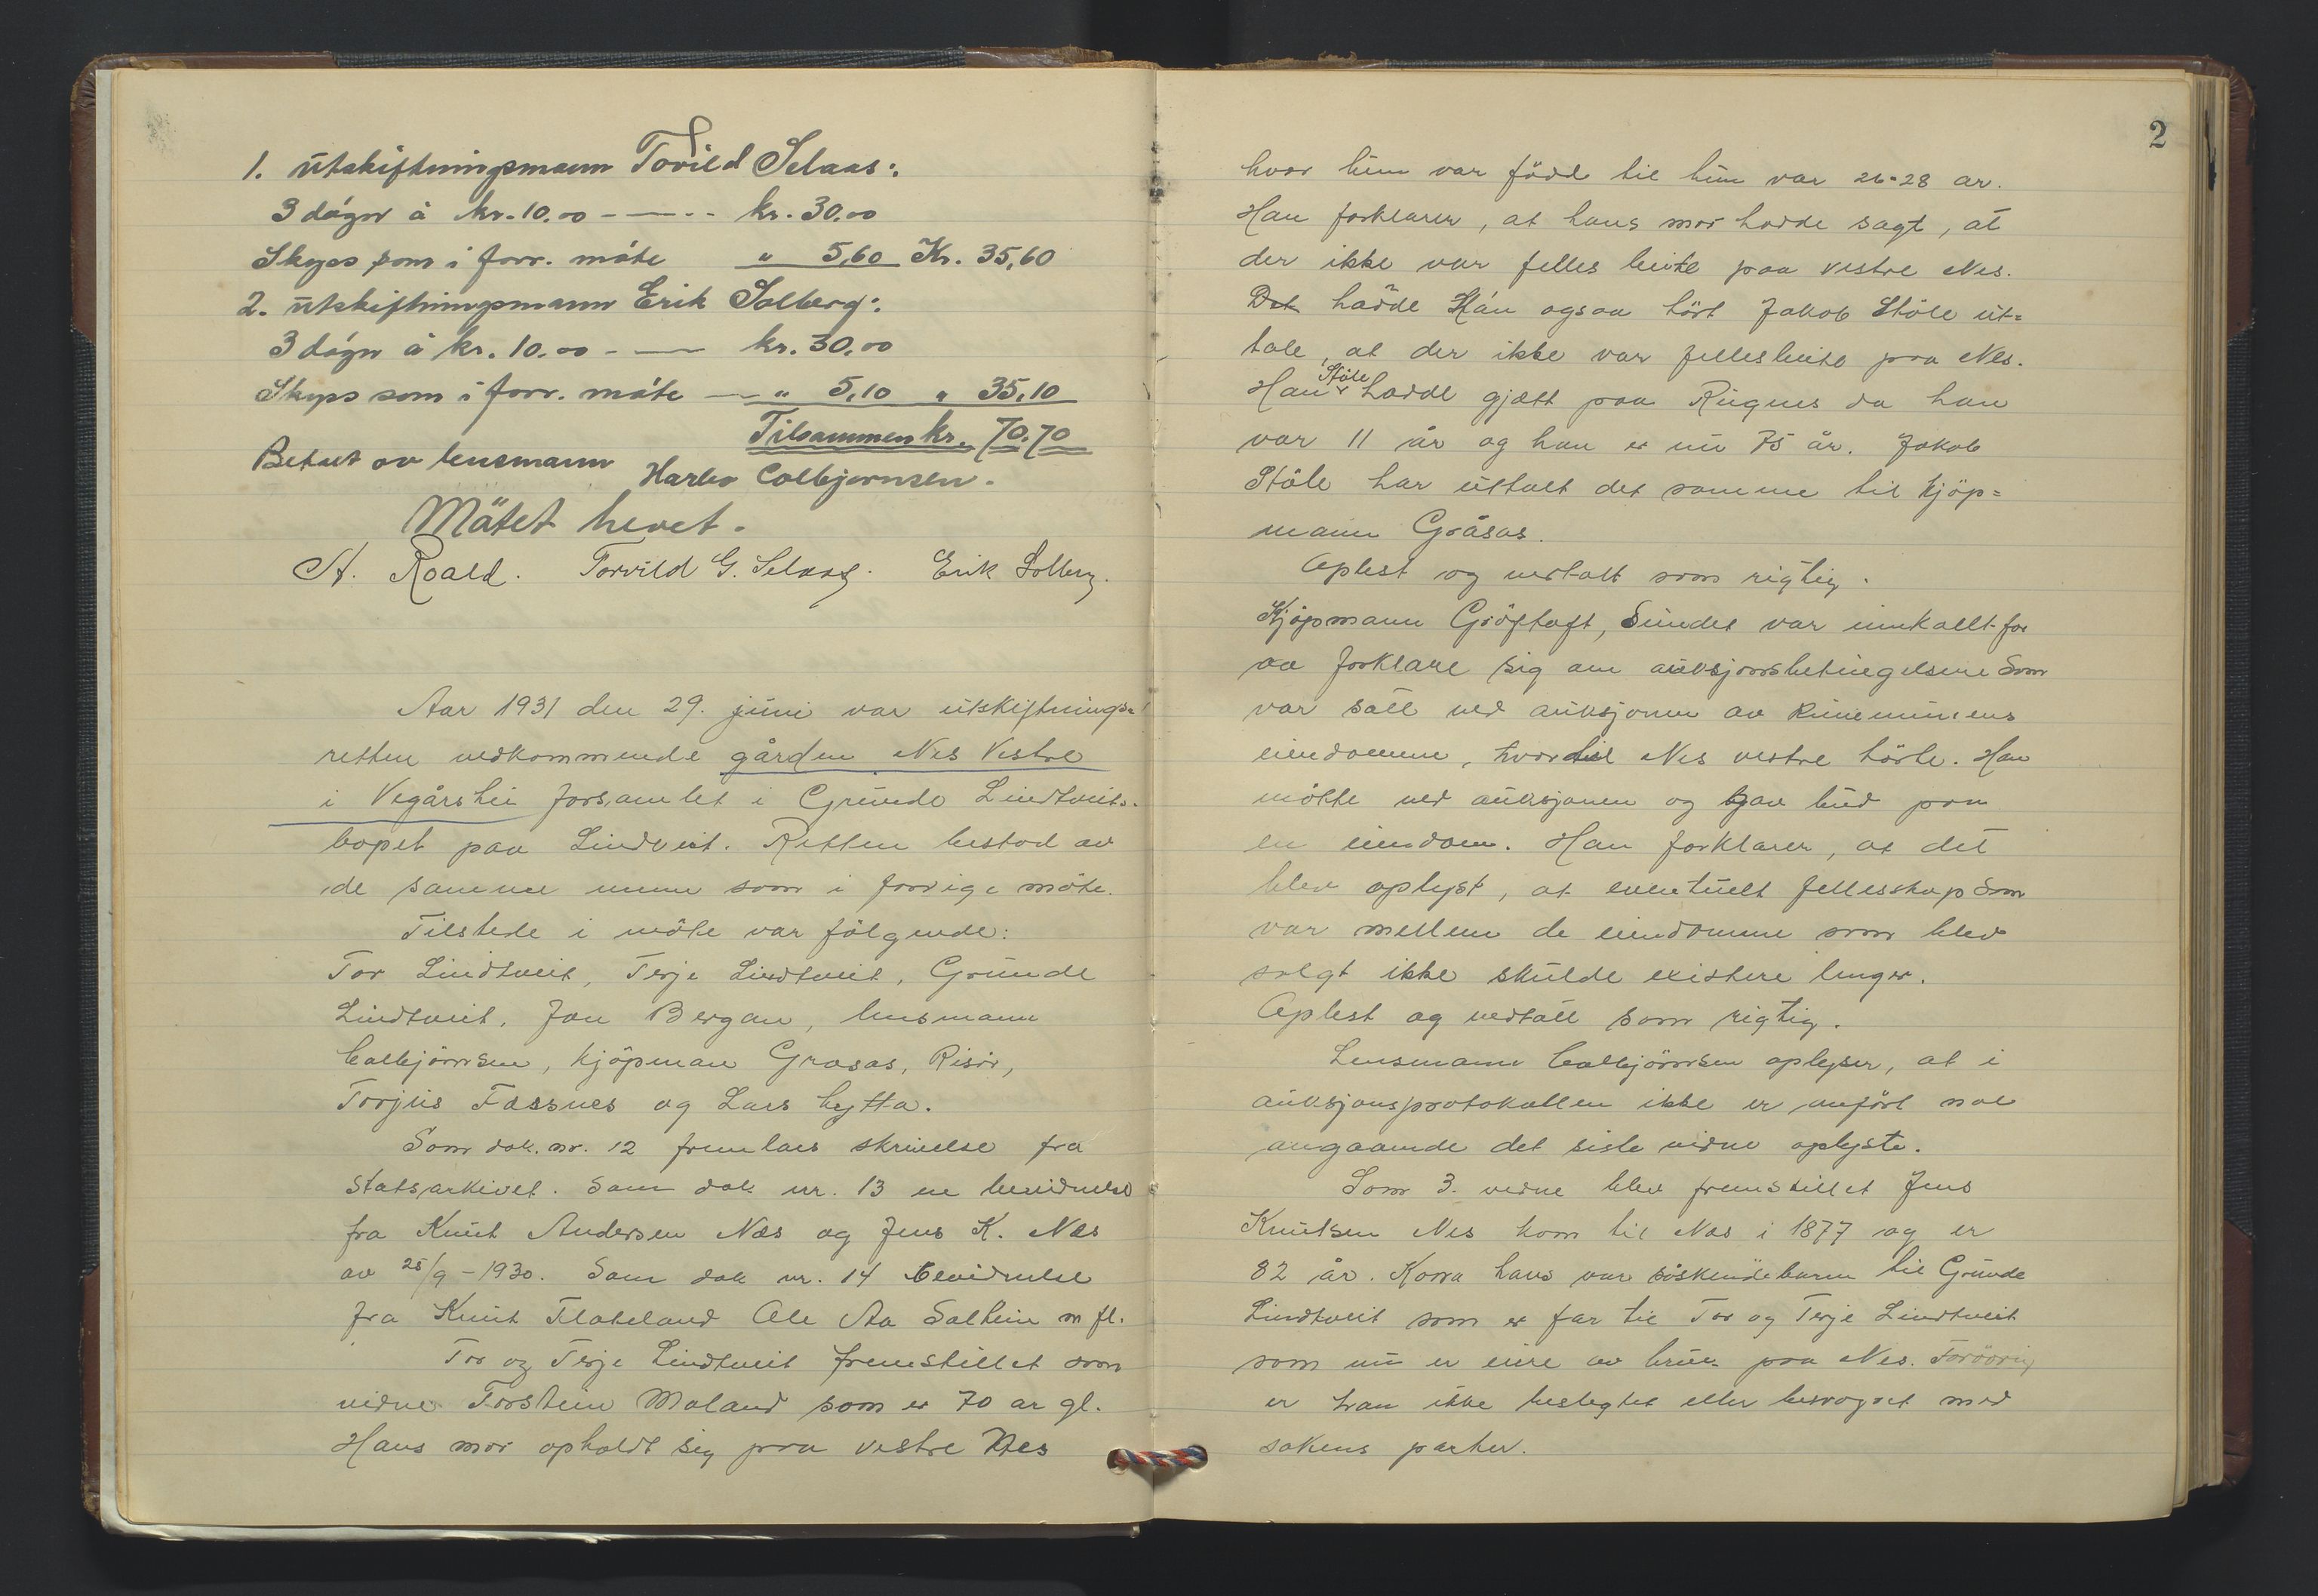 1. utskiftningsmann Torvild Selaas:
3 døgn à kr. 10.00 - — - - kr. 30.00
Skyss som i forr. møte " 5,60 Kr. 35,60
2. utskiftningsmann Erik Solberg:
3 døgn à kr. 10.00 - — kr. 30.00
Skyss som i forr. møte — " 5,10 " 35,10
Tilsammen kr. 70,70
Betalt av lensmann
Harbo Colbjørnsen.
Møtet hevet.
A. Roald. Torvild G. Selaas. Erik Solberg.
Aar 1931 den 29. juni var utskiftnings=
retten vedkommende gården Nes Vestre
i Vegårshei forsamlet i Grunde Lindtveits.
bopel paa Lindveit. Retten bestod av
de samme menn som i forrige møte.
Tilstede i møte var følgende:
Tor Lindtveit, Terje Lindtveit, Grunde
Lindtveit, Jon Bergan, lensmann
Colbjørnsen, kjøpman Grasas, Risör,
Torjus Fassnes og Lars hytta.
Som dok. nr. 12 fremlaes skrivelse fra
Statsarkivet. Som dok nr. 13 en bevidnelse
fra Knut Andersen Næs og Jens K. Næs
av 25/9 - 1930. Som dok nr. 14 bevidnelse
fra Knut Flateland Ole Aa Salthein m fl.
Tor og Terje Lindtveit fremstillet som
vidne Torstein Moland som er 70 ar gl.
Hans mor opholdt sig paa vestre Nes
2
hvor hun var född til hun var 26-28 ar.
Han forklarer, at hans mor hadde sagt, at
der ikke var felles beite paa vestre Nes.
Det hadde Han ogsaa hört Jakob Stöle ut=
tale, at der ikke var fellesbeite paa Nes.
Han Stöle hadde gjætt paa Rugnes da han
var 11 år og han er nu 75 år. Jakob
Stöle har uttalt det samme til kjöp=
mann Gråsås.
Oplest og vedtatt som rigtig.
Kjøpmann Gröftoft, Sundet var innkallt for
aa forklare sig om auksjonsbetingelsene som
var satt ved auksjonen av
eiendomme, hvortil Nes vestre hörte. Han
mötte ved auksjonen og gav bud paa
en eiendom. Han forklarer, at det
blev oplyst, at eventuelt fellesskap som
var mellem de eiendomme som blev
solgt ikke skulde existere lenger.
Oplest og vedtatt som rigtig.
Lensmann Colbjörnsen oplyser, at i
auksjonsprotokollen ikke er anfört noe
angaaende det siste vidne oplyste.
Som 3. vidne blev fremstillet Jens
Knutsen Nes kom til Nes i 1877 og er
82 år. Kona hans var söskendebarn til Grunde
Lindtveit som er far til Tor og Terje Lindtveit
som nu er eiere av bruk paa Nes. Forövrig
er han ikke beslegtet eller besvogret med
sakens parter.